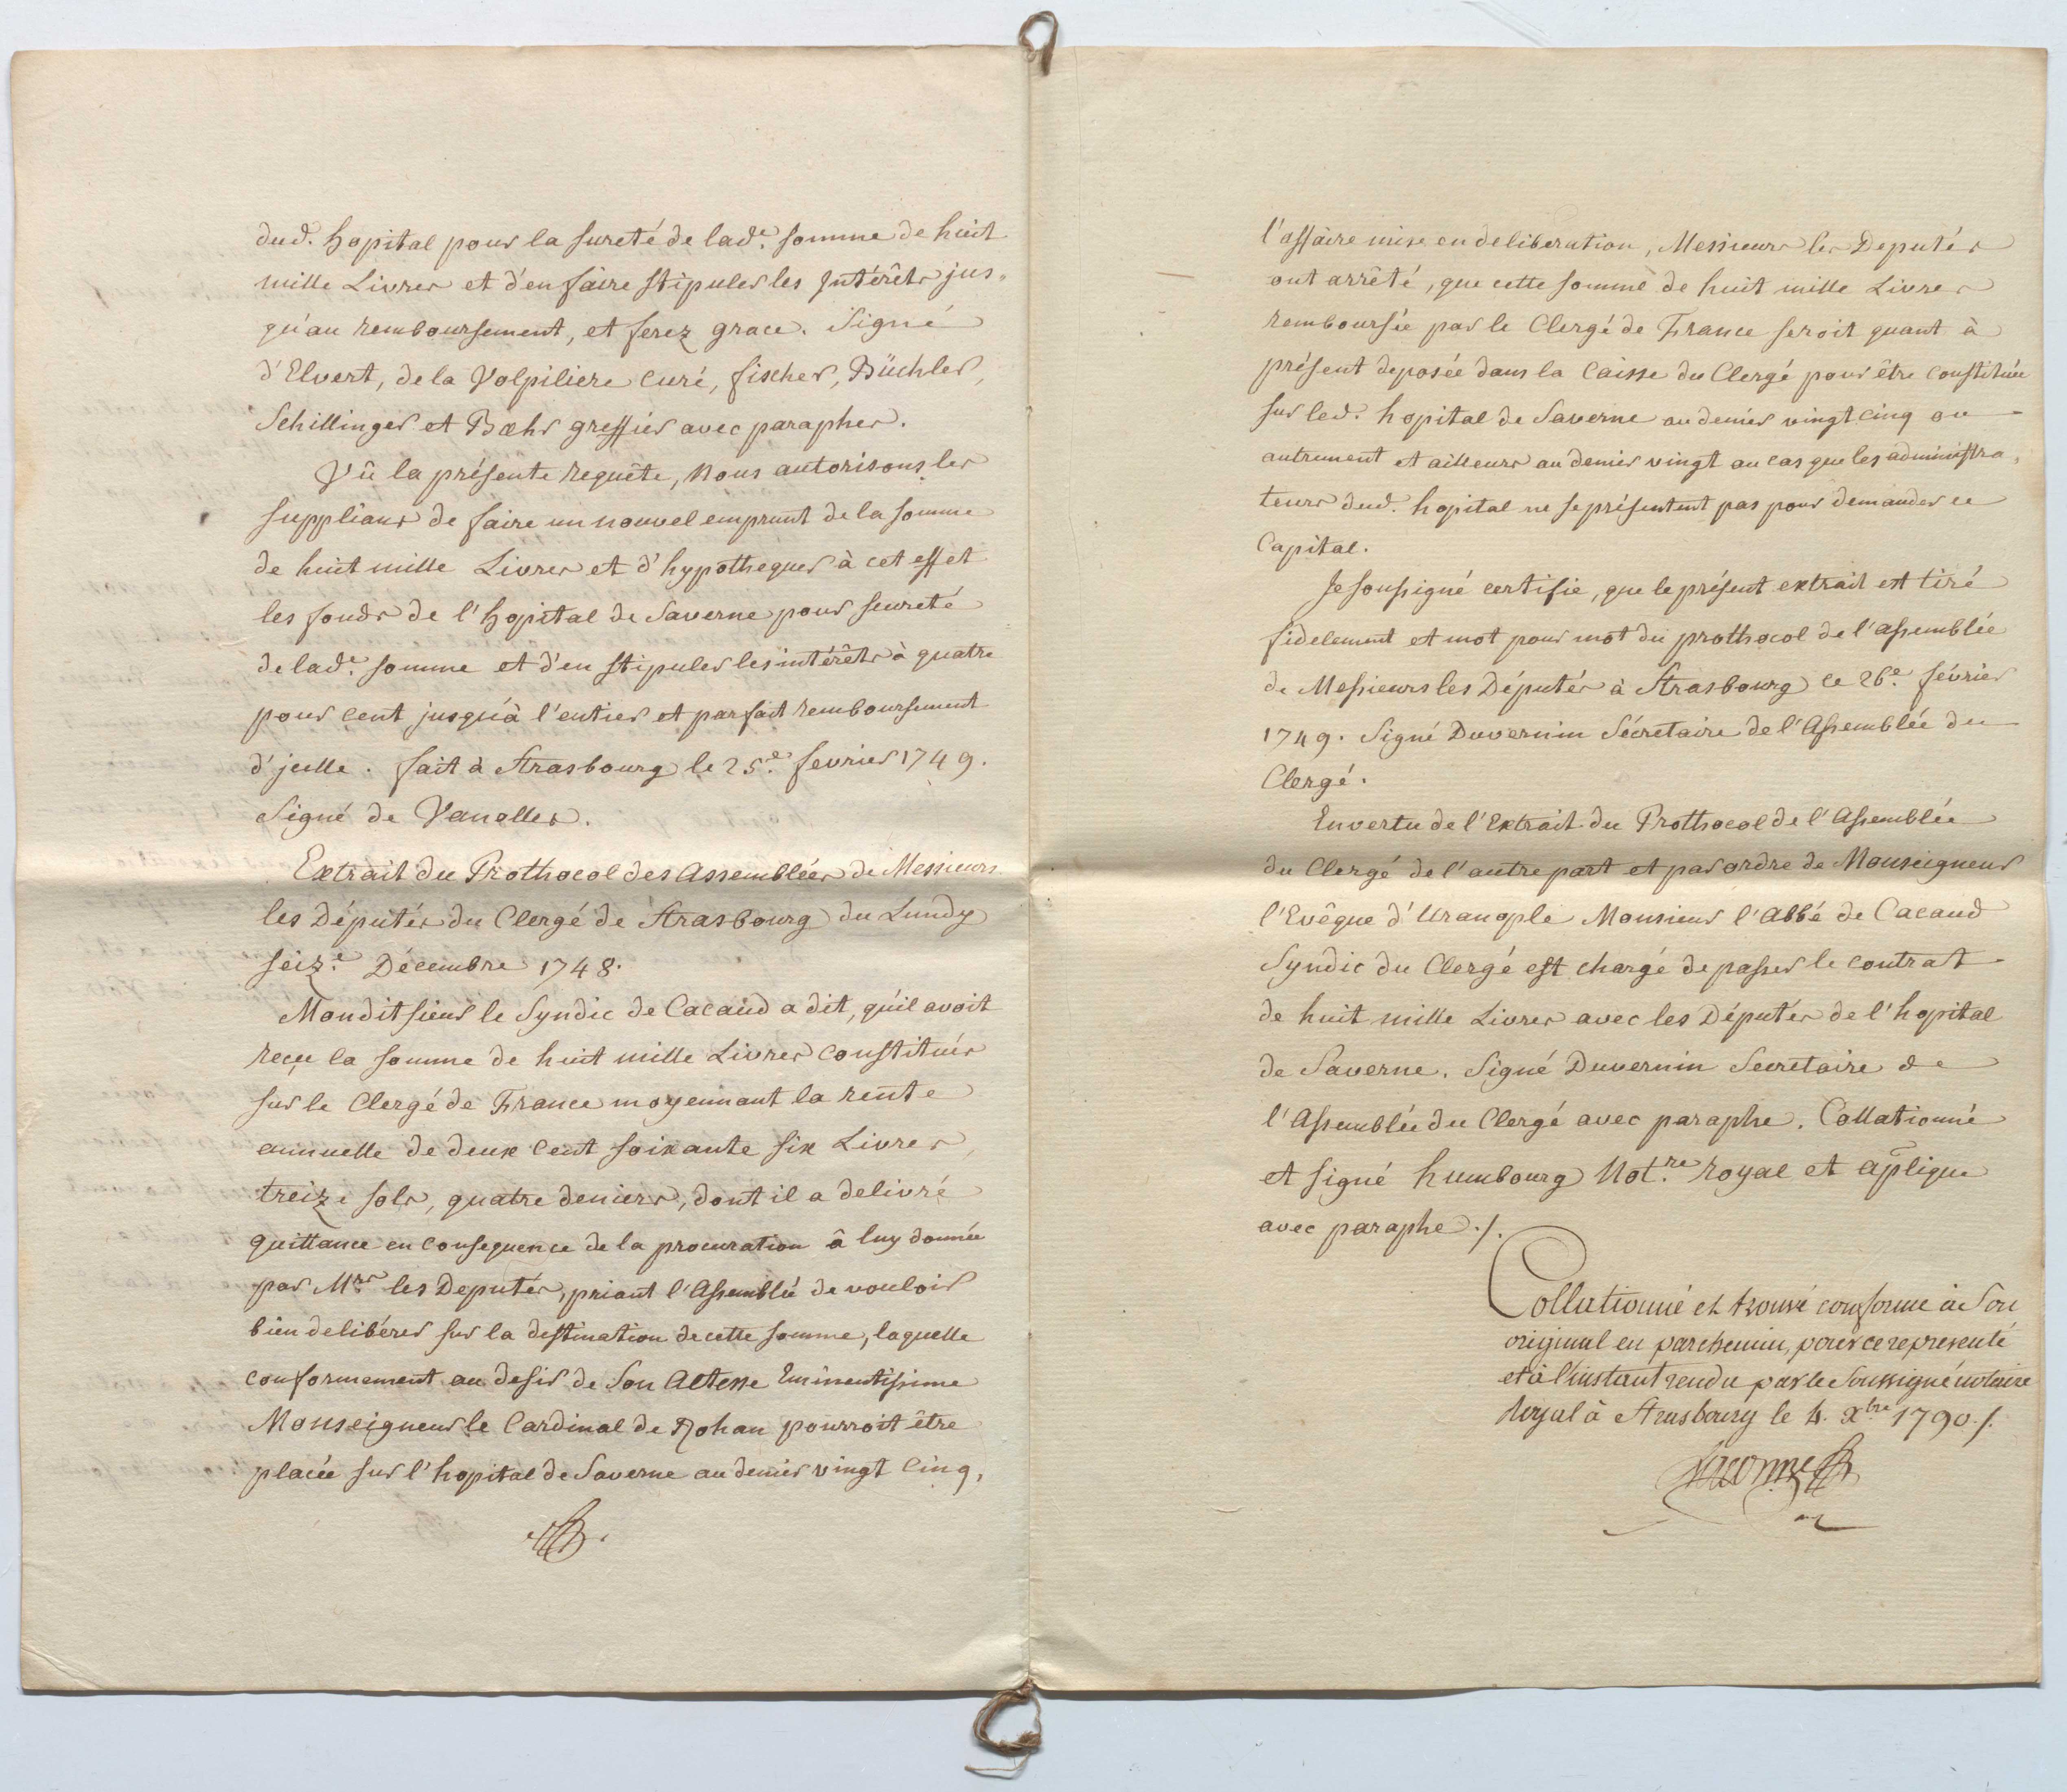 dud. hopital pour la sureté de lad.e somme de huit
mille Livres et d'en faire stipuler les Intérêts jus=
qu'au remboursement, et ferez grace. Signé
d'Elvert, de la Volpiliere curé, fischer, Büchler,
Schillinger et Bæhr greffier avec paraphes.
Vû la présente requête, Nous autorisons les
supplians de faire un nouvel emprunt de la somme
de huit mille Livres et d'hypothequer à cet effet
les fonds de l'hopital de Saverne pour seureté
de lad.e somme et d'en stipuler les intérêts à quatre
pour cent jusqu'à l'entier et parfait remboursement
d'jcelle. fait à Strasbourg le 25.e fevrier 1749.
Signé de Vanolles.
Extrait du Prothocol des Assemblées de Messieurs
les Députés du Clergé de Strasbourg du Lundy
seiz.e Décembre 1748.
Mondit sieur le Syndic de Cacaud a dit, qu'il avoit
reçu la somme de huit mille Livres constitués
sur le Clergé de France moyennant la rente
annuelle de deux cent soixante six Livres,
treize sols, quatre deniers, dont il a delivré
quittance en consequence de la procuration à luy donnée
par Mrs les Deputés, priant l'Assemblée de vouloir
bien delibérer sur la destination de cette somme, laquelle
conformement au desir de Son Altesse Eminentissime
Monseigneur le Cardinal de Rohan pourroit être
placée sur l'hopital de Saverne au denier vingt cinq,
l'affaire mise en deliberation, Messieurs les Deputés
ont arrêté, que cette somme de huit mille Livres
remboursée par le Clergé de France seroit quant à
présent deposée dans la Caisse du Clergé pour être constituée
sur led. hopital de Saverne au denier vingt cinq ou
autrement et ailleurs au denier vingt au cas que les administra=
teurs dud. hopital ne se présentent pas pour demander ce
Capital.
Je soussigné certifie, que le présent extrait est tiré
fidelement et mot pour mot du prothocol de l'assemblée
de Messieurs les Députés à Strasbourg ce 26.e février
1749. Signé Duvernin Sécretaire de l'Assemblée du
Clergé.
En vertu de l'Extrait du Prothocol de l'Assemblée
du Clergé de l'autre part et par ordre de Monseigneur
l'Evêque d'Uranople Monsieur l'Abbé de Cacaud
Syndic du Clergé est chargé de passer le contrat
de huit mille Livres avec les Députés de l'hopital
de Saverne. Signé Duvernin Secretaire de
l'Assemblée du Clergé avec paraphe. Collationné
et signé humbourg Not.re royal et aplique
avec paraphe ./.
Collationné et trouvé conforme à son
original en parchemin, pour ce representé
et à l'instant rendu par le Soussigné notaire
Royal à Strasbourg le 4. Xbre 1790./.